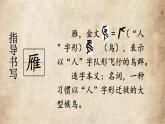 指导书写
雁
雁，金文=（“人”字形）（“人”字形），表示以“人”字队形飞行的鸟类。造字本义：名词，一种以“人”字形迁徙的大型候鸟。